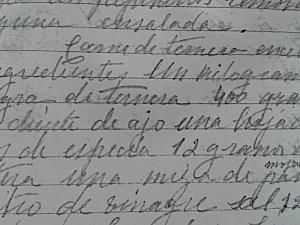 guna ensalada.
Carne de ternera
gredientes Un kilogram
gra de ternera 400 gra
diente de ajo una hoja
s de especia 12 gramos
una miga de pan
tio de vinagre sal